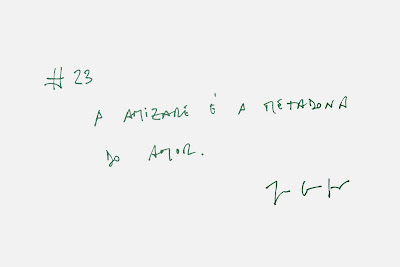 # 23
A AMIZADE É A METADONA
DO AMOR.